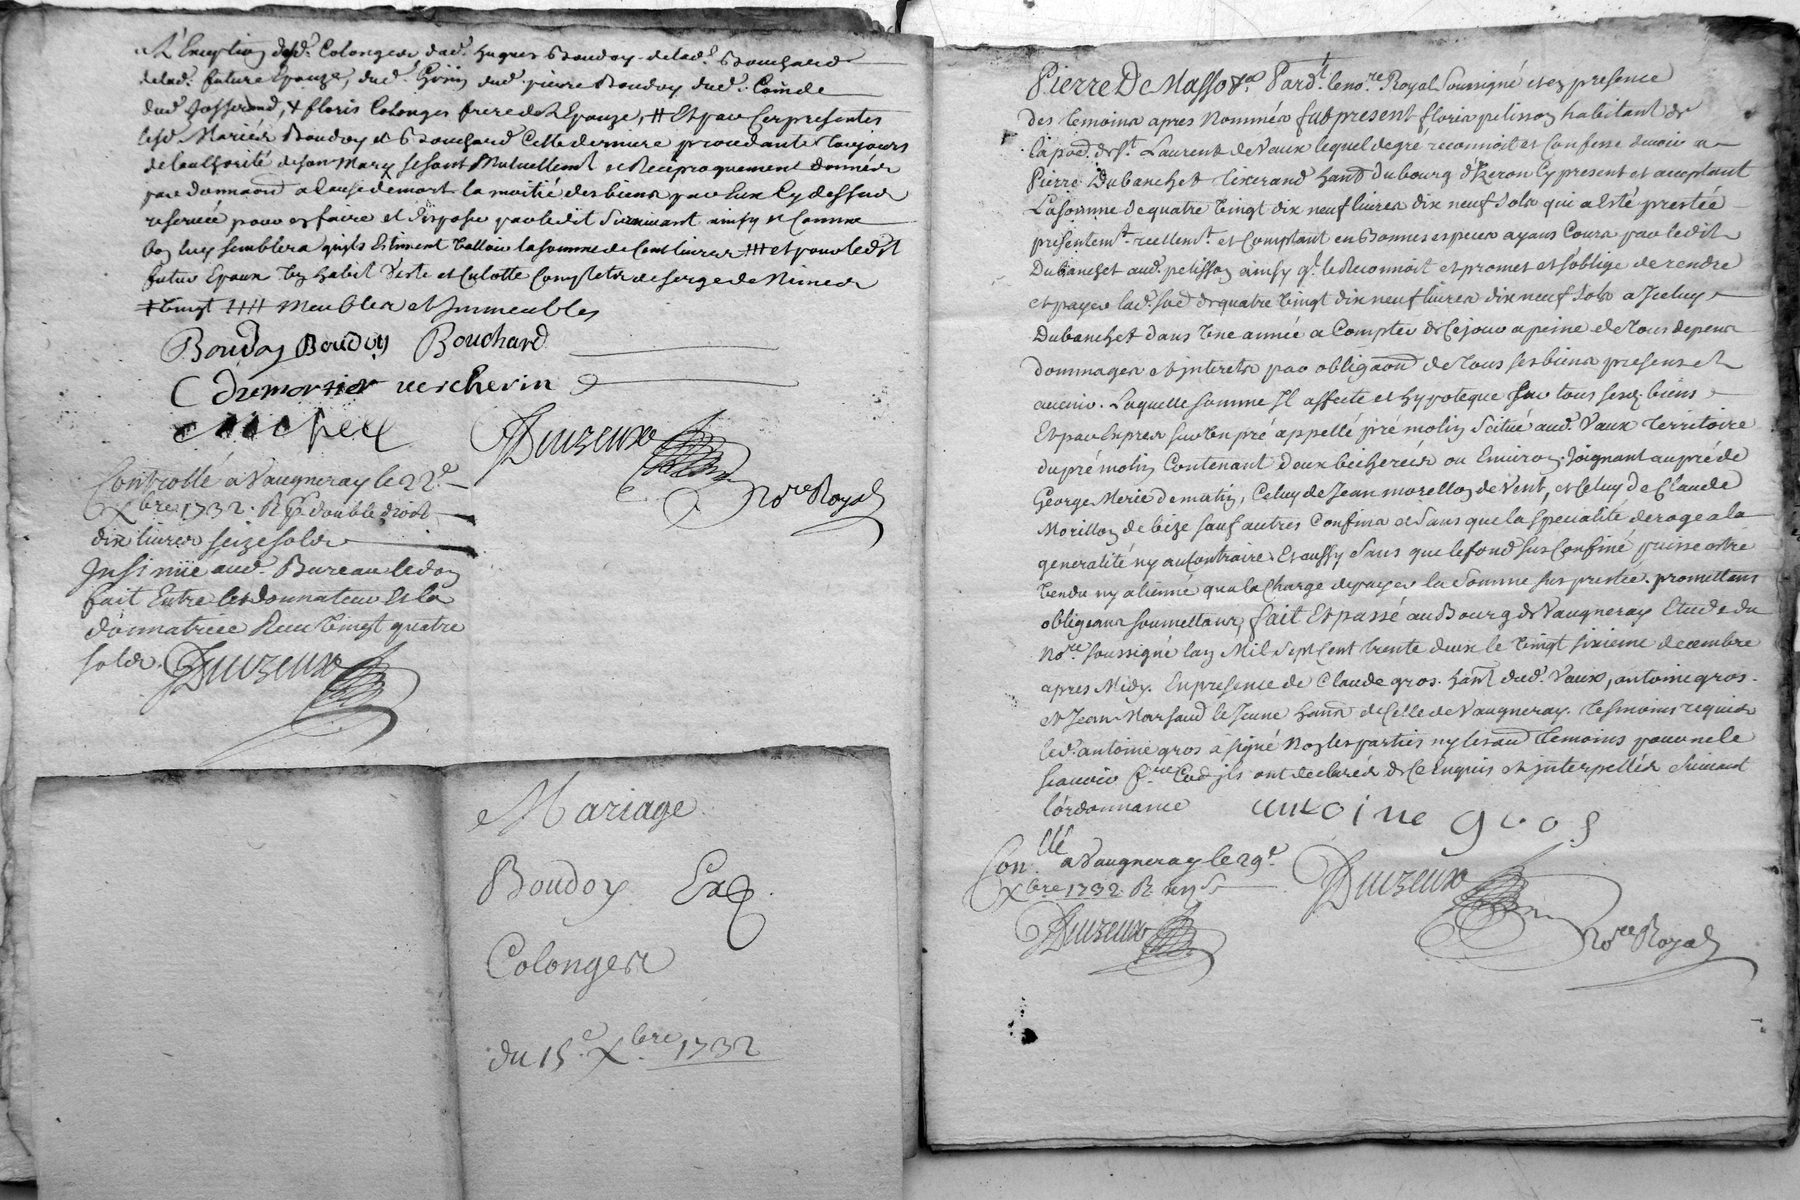 A L'exception desd. Colonges, dud. hugues Boudoy de lad. Bouchard
de lad. future Epouze, dud. dud. pierre Boudoy dud. Coinde
dud Josserand, + floris Colonges frere de L'Epouze, # Et par Ces presentes
lesd. Mariés Boudoy et Bouchard Cette derniere procedante toujours
de l'authorité de son Mary se sont Mutuellement et Reciproquement donnés
par donnaõn a Cause de mort la moitié des biens par Eux Cy dessus
reservée pour en faire et disposer par le dit Survivant ainsy et Comme
bon luy semblera qu'ils Estiment valloir la somme de Cent livres ### et pour le dit
futur Epoux Un habit Veste et Culotte Complets de serge de Nimes
+ vingt ### Meubles et Immeubles
Boudoy Boudoy Bouchard
C dumortier vercherin
Duvzeux
Nore Royal
Controllé a Vaugneray le 22e
Xbre 1732. R p double droit
dix livres seize sols
Insinué aud. Bureau le don
fait Entre les donnateur Et la
donnatrice Reçu vingt quatre
sols. Duvzeux
Mariage
Boudoy Et
Colonges
du 15e Xbre 1732
Pierre De Masso &a Pardt le nore Royal Soussigné et en presence
des temoins apres Nommés fut present floris pelisson habitant de
la par. de St Laurent de Vaux lequel de gré reconnoit et Confesse devoir a
Pierre Dubanchet tixerand hant du bourg d'Izeron Cy present et acceptant
La somme de quatre vingt dix neuf livres dix neuf sols qui a Esté prestée
presentemt reellemt et Comptant en Bonnes especes ayans Cours par le dit
Dubanchet aud. pelisson ainsy qu'il le Reconnoit et promet et s'oblige de rendre
et payer lad. sõe de quatre vingt dix neuf livres dix neuf sols a Iceluy
Dubanchet dans Une année a Compter de Ce jour a peine de tous depens
dommages et interets par obligaõn de tous ses biens presens et
avenir. Laquelle somme Il affecte et hypoteque sur tous sesd. biens
Et par Expres sur Un pré appellé pré molin scitué aud. Vaux territoire
du pré molin Contenant deux bicherées ou Environ. Joignant au pré de
George Merie de matin, Celuy de Jean morellon de Vent, et Celuy de Claude
Morillon de bize sauf autres Confins et sans que la specialité deroge a la
generalité ny au Contraire. Et aussy sans que le fond sus Confiné puisse estre
vendu ny aliené qu'a la Charge de payer la Somme sus prestée. promettans
obligeans soumettans, fait Et passé au Bourg de Vaugneray Etude du
Nore soussigné l'an Mil Sept Cent trente deux le vingt sixieme decembre
apres Midy. En presence de Claude gros. hant dud. Vaux, antoine gros.
et Jean Marsaud le Jeune hans de Celle de Vaugneray. temoins requis
led. antoine gros a signé Non les parties ny les aut temoins pour ne le
scavoir Cõe ils ont declarés de Ce Enquis et interpellés suivant
l'ordonnance antoine gros
Conllé a Vaugneray le 29e
Xbre 1732. R.
Duvzeux
Duvzeux
Nore Royal